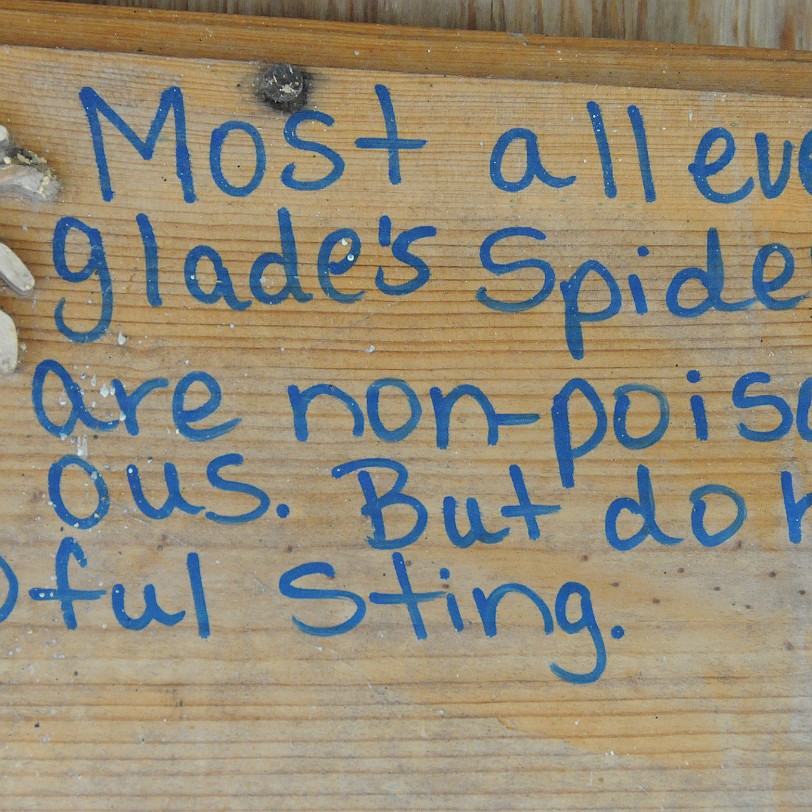 Most all eve
glade's Spide
are non-poiso
ous. But do h
ful Sting.